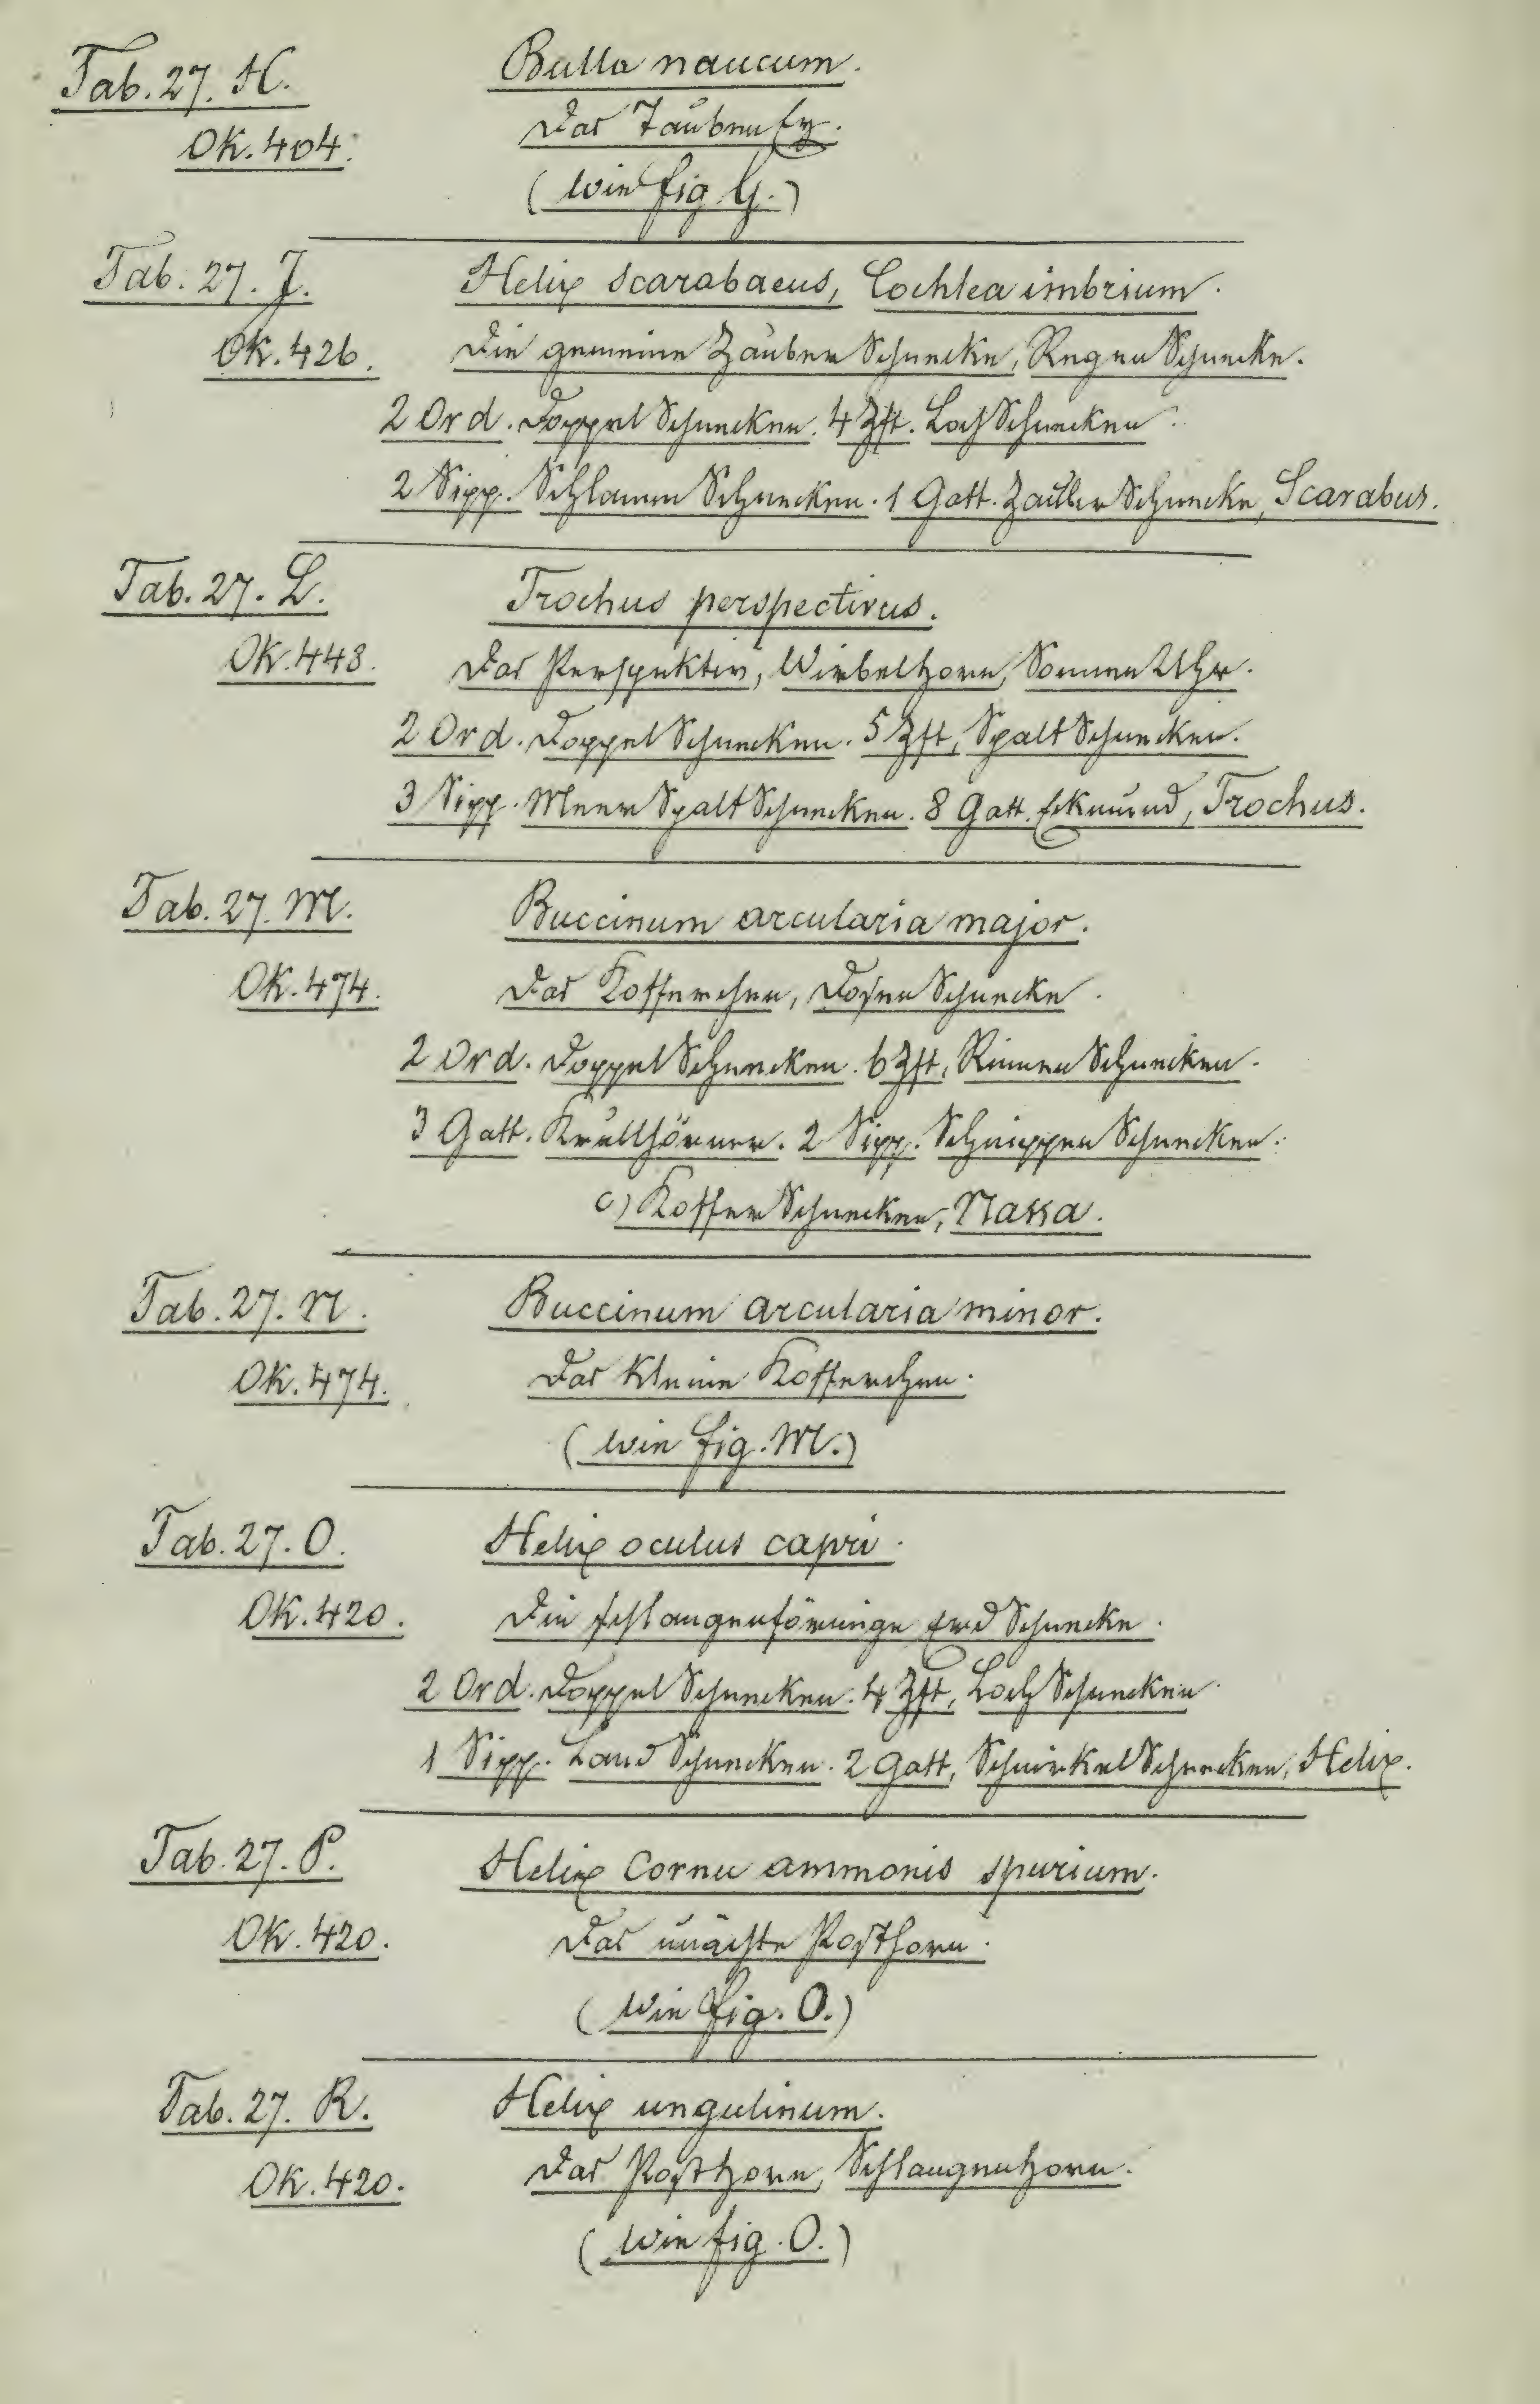 Tab. 27. H. Bulla naucum.
OK. 404. Das Taubeney.
(wie fig. G.)
Tab. 27. J. Helix scarabaeus, Cochlea imbrium.
OK. 426. Die gemeine Zauber Schnecke, Regen Schnecke.
2 Ord. Doppel Schnecken. 4 Zft. Loch Schnecken.
2 Sipp. Schlamm Schnecken. 1 Gatt. Zauber Schnecke, Scarabus.
Tab. 27. L. Trochus perspectivus.
OK. 448. Das Perspektiv, Wirbelhorn, Sonnen Uhr.
2 Ord. Doppel Schnecken. 5 Zft, Spalt Schnecken.
3 Sipp. Meer Spalt Schnecken. 8 Gatt. Eckmund, Trochus.
Tab. 27. M. Buccinum arcularia major.
OK. 474. Das Kofferchen, Dosen Schnecke.
2 Ord. Doppel Schnecken. 6 Zft, Rinnen Schnecken.
3 Gatt. Krullhörner. 2 Sipp. Schnippen Schnecken.
c) Koffer Schnecken, Nassa.
Tab. 27. N. Buccinum arcularia minor.
OK. 474. Das kleine Kofferchen.
(wie fig. M.)
Tab. 27. O. Helix oculus capri.
OK. 420. Die schlangenförmige Erd Schnecke.
2 Ord. Doppel Schnecken. 4 Zft, Loch Schnecken
1 Sipp. Land Schnecken. 2 Gatt, Schnirkel Schnecken, Helix.
Tab. 27. P. Helix Cornu ammonis spurium.
OK. 420. Das unächte Posthorn.
(wie fig. O.)
Tab. 27. R. Helix ungulinum.
OK. 420. Das Posthorn, Schlangenhorn.
(wie fig. O.)